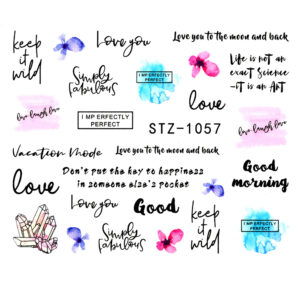 keep
it
wild
Love you
Love you to the moon and back
Simply
fabulous
I MPERFECTLY
PERFECT
Life is not an
exact Science
-it is an Art
love laugh love
I MPERFECTLY
PERFECT
STZ-1057
love
love laugh love
Vacation Mode
Love you to the moon and back
Good
morning
love
Don't put the key to happiness
in someone else's pocket
Love you
Good
keep
it
wild
I MPERFECTLY
PERFECT
Simply
fabulous